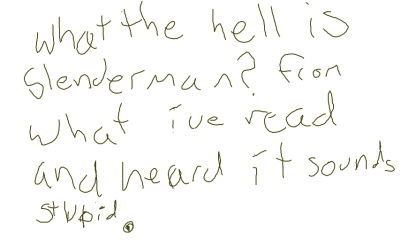 what the hell is
slenderman? from
what ive read
and heard it sounds
stupid.